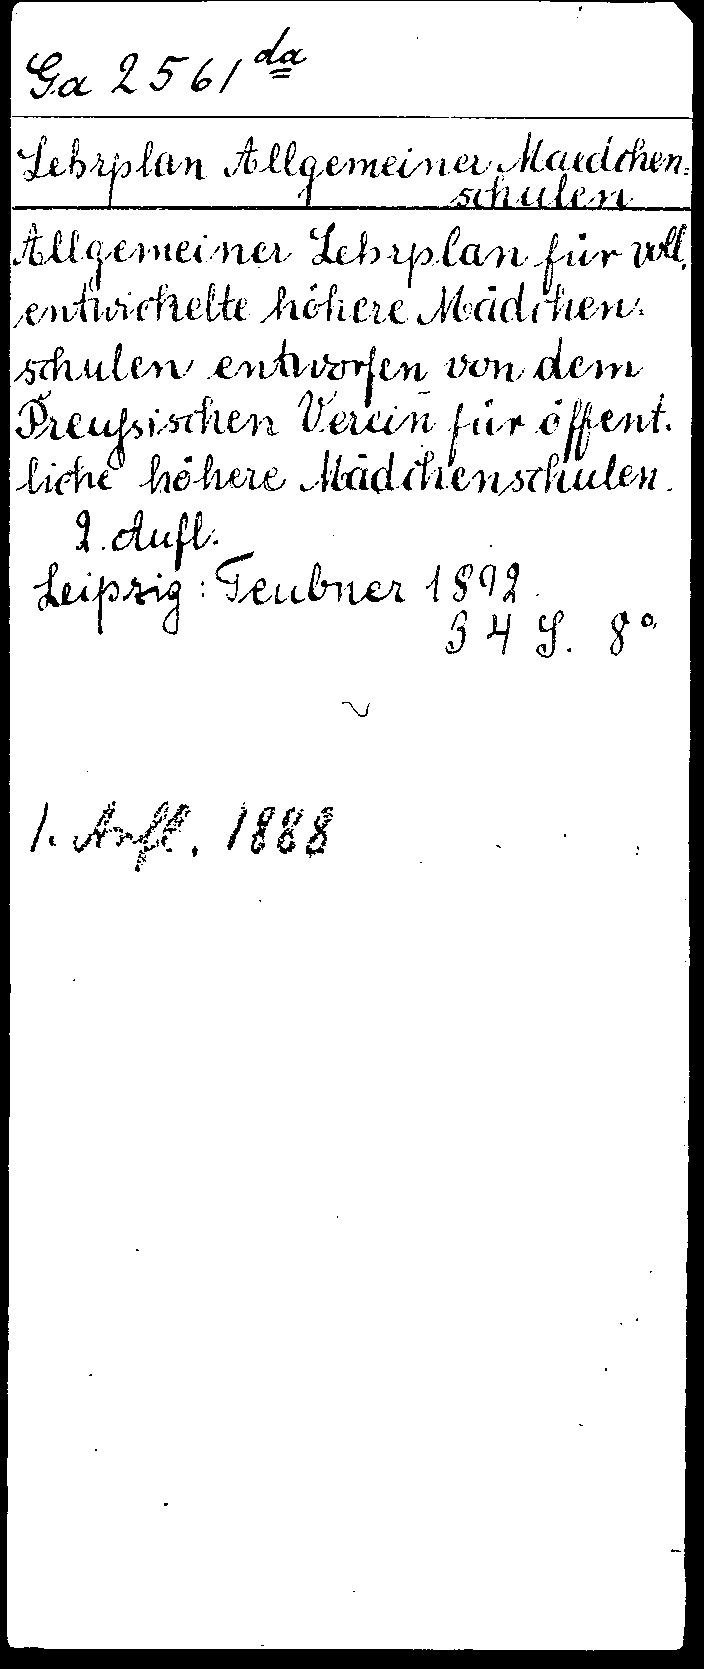 Ga 2561 da
Lehrplan Allgemeiner Maedchen-
schulen
Allgemeiner Lehrplan für voll-
entwickelte höhere Mädchen-
schulen entworfen von dem
Preußischen Verein für öffent-
liche höhere Mädchenschulen.
2. Aufl.
Leipzig: Teubner 1892.
34 S. 8°
1. Aufl. 1888